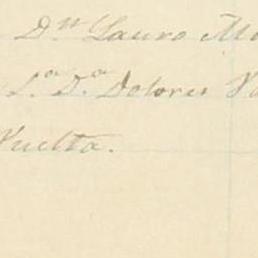 Dⁿ Lauro
Sª Dª Dolores
Vuelta.